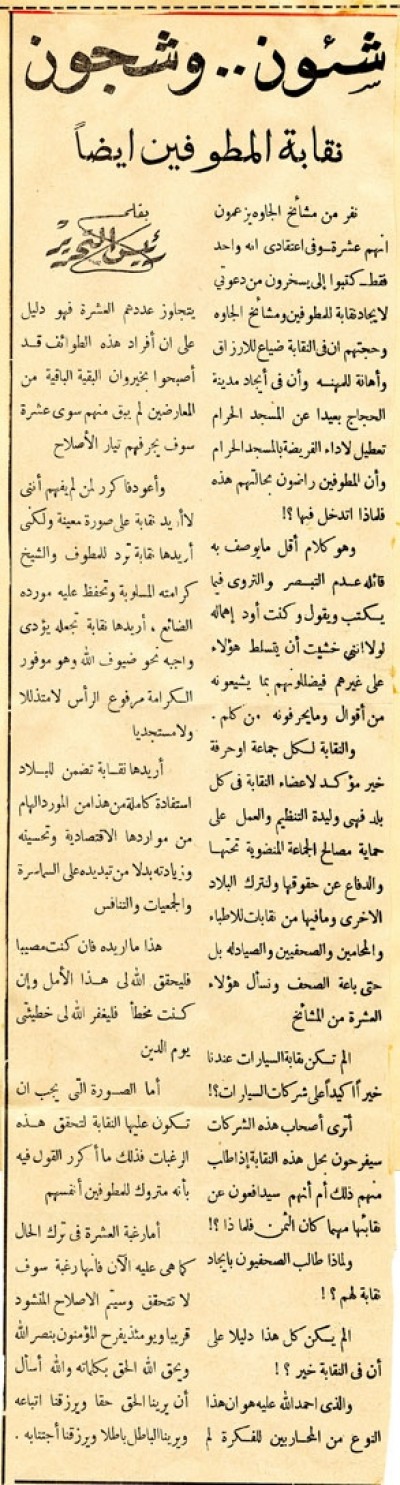 شئون .. وشجون
نقابة المطوفين ايضاً
بقلم
رئيس التحرير
نفر من مشائخ الجاوه يزعمون
انهم عشرة ــ وفى اعتقادى انه واحد
فقط ــ كتبوا إلى يسخرون من دعوتي
لايجاد نقابة للمطوفين ومشائخ الجاوه
وحجتهم ان فى النقابة ضياع للارزاق
وأهانة للمهنه وأن فى أيجاد مدينة
الحجاج بعيدا عن المسجد الحرام
تعطيل لاداء الفريضة بالمسجد الحرام
وأن المطوفين راضون بحالتهم هذه
فلماذا اتدخل فيها ؟!
وهو كلام أقل مايوصف به
قائله عدم التبصر والتروى فيما
يكتب ويقول وكنت أود إهماله
لولا انني خشيت أن يتسلط هؤلاء
على غيرهم فيضللونهم بما يشيعونه
من أقوال ومايحرفونه من كلم .
والنقابة لكل جماعة اوحرفة
خير مؤكد لاعضاء النقابة فى كل
بلد فهى وليدة التنظيم والعمل على
حماية مصالح الجماعة المنضوية تحتها
والدفاع عن حقوقها ولنترك البلاد
الاخرى ومافيها من نقابات للاطباء
والمحامين والصحفيين والصيادله بل
حتى باعة الصحف ونسأل هؤلاء
العشرة من المشائخ
الم تكن نقابة السيارات عندنا
خيراً أكيداً على شركات السيارات ؟!
أترى أصحاب هذه الشركات
سيفرحون بحل هذه النقابة إذا طلب
منهم ذلك أم أنهم سيدافعون عن
نقابتها مهما كان الثمن فلماذا ؟!
ولماذا طالب الصحفيون بايجاد
نقابة لهم ؟ !
الم يكن كل هذا دليلا على
أن فى النقابة خير ؟ !
والذى احمد الله عليه هو ان هذا
النوع من المحاربين للفكرة لم
يتجاوز عددهم العشرة فهو دليل
على ان أفراد هذه الطوائف قد
أصبحوا بخير وان البقية الباقية من
المعارضين لم يبق منهم سوى عشرة
سوف يجرفهم تيار الأصلاح
وأعود فاكرر لمن لم يفهم أننى
لاأريد نقابة على صورة معينة ولكنى
أريدها نقابة ترد للمطوف والشيخ
كرامته المسلوبة وتحفظ عليه مورده
الضائع . أريدها نقابة تجعله يؤدى
واجبه نحو ضيوف الله وهو موفور
الكرامة مرفوع الرأس لامتذللا
ولا مستجديا
أريدها نقابة تضمن للبلاد
استفادة كاملة من هذا من المورد الهام
من مواردها الاقتصادية وتحسينه
وزيادته بدلا من تبديده على السماسرة
والجمعيات والتنافس
هذا ما اريده فان كنت مصيبا
فليحقق الله لى هذا الأمل وإن
كنت مخطأ فليغفر الله لى خطيئتى
يوم الدين
أما الصورة التى يجب ان
تكون عليها النقابة لتحقق هذه
الرغبات فذلك ما أكرر القول فيه
بأنه متروك للمطوفين أنفسهم
أما رغبة العشرة فى ترك الحال
كما هى عليه الآن فانها رغبة سوف
لا تتحقق وسيتم الاصلاح المنشود
قريبا ويومئذ يفرح المؤمنون بنصر الله
ويحق الله الحق بكلماته والله أسأل
أن يرينا الحق حقا ويرزقنا اتباعه
ويرينا الباطل باطلا ويرزقنا أجتنابه .